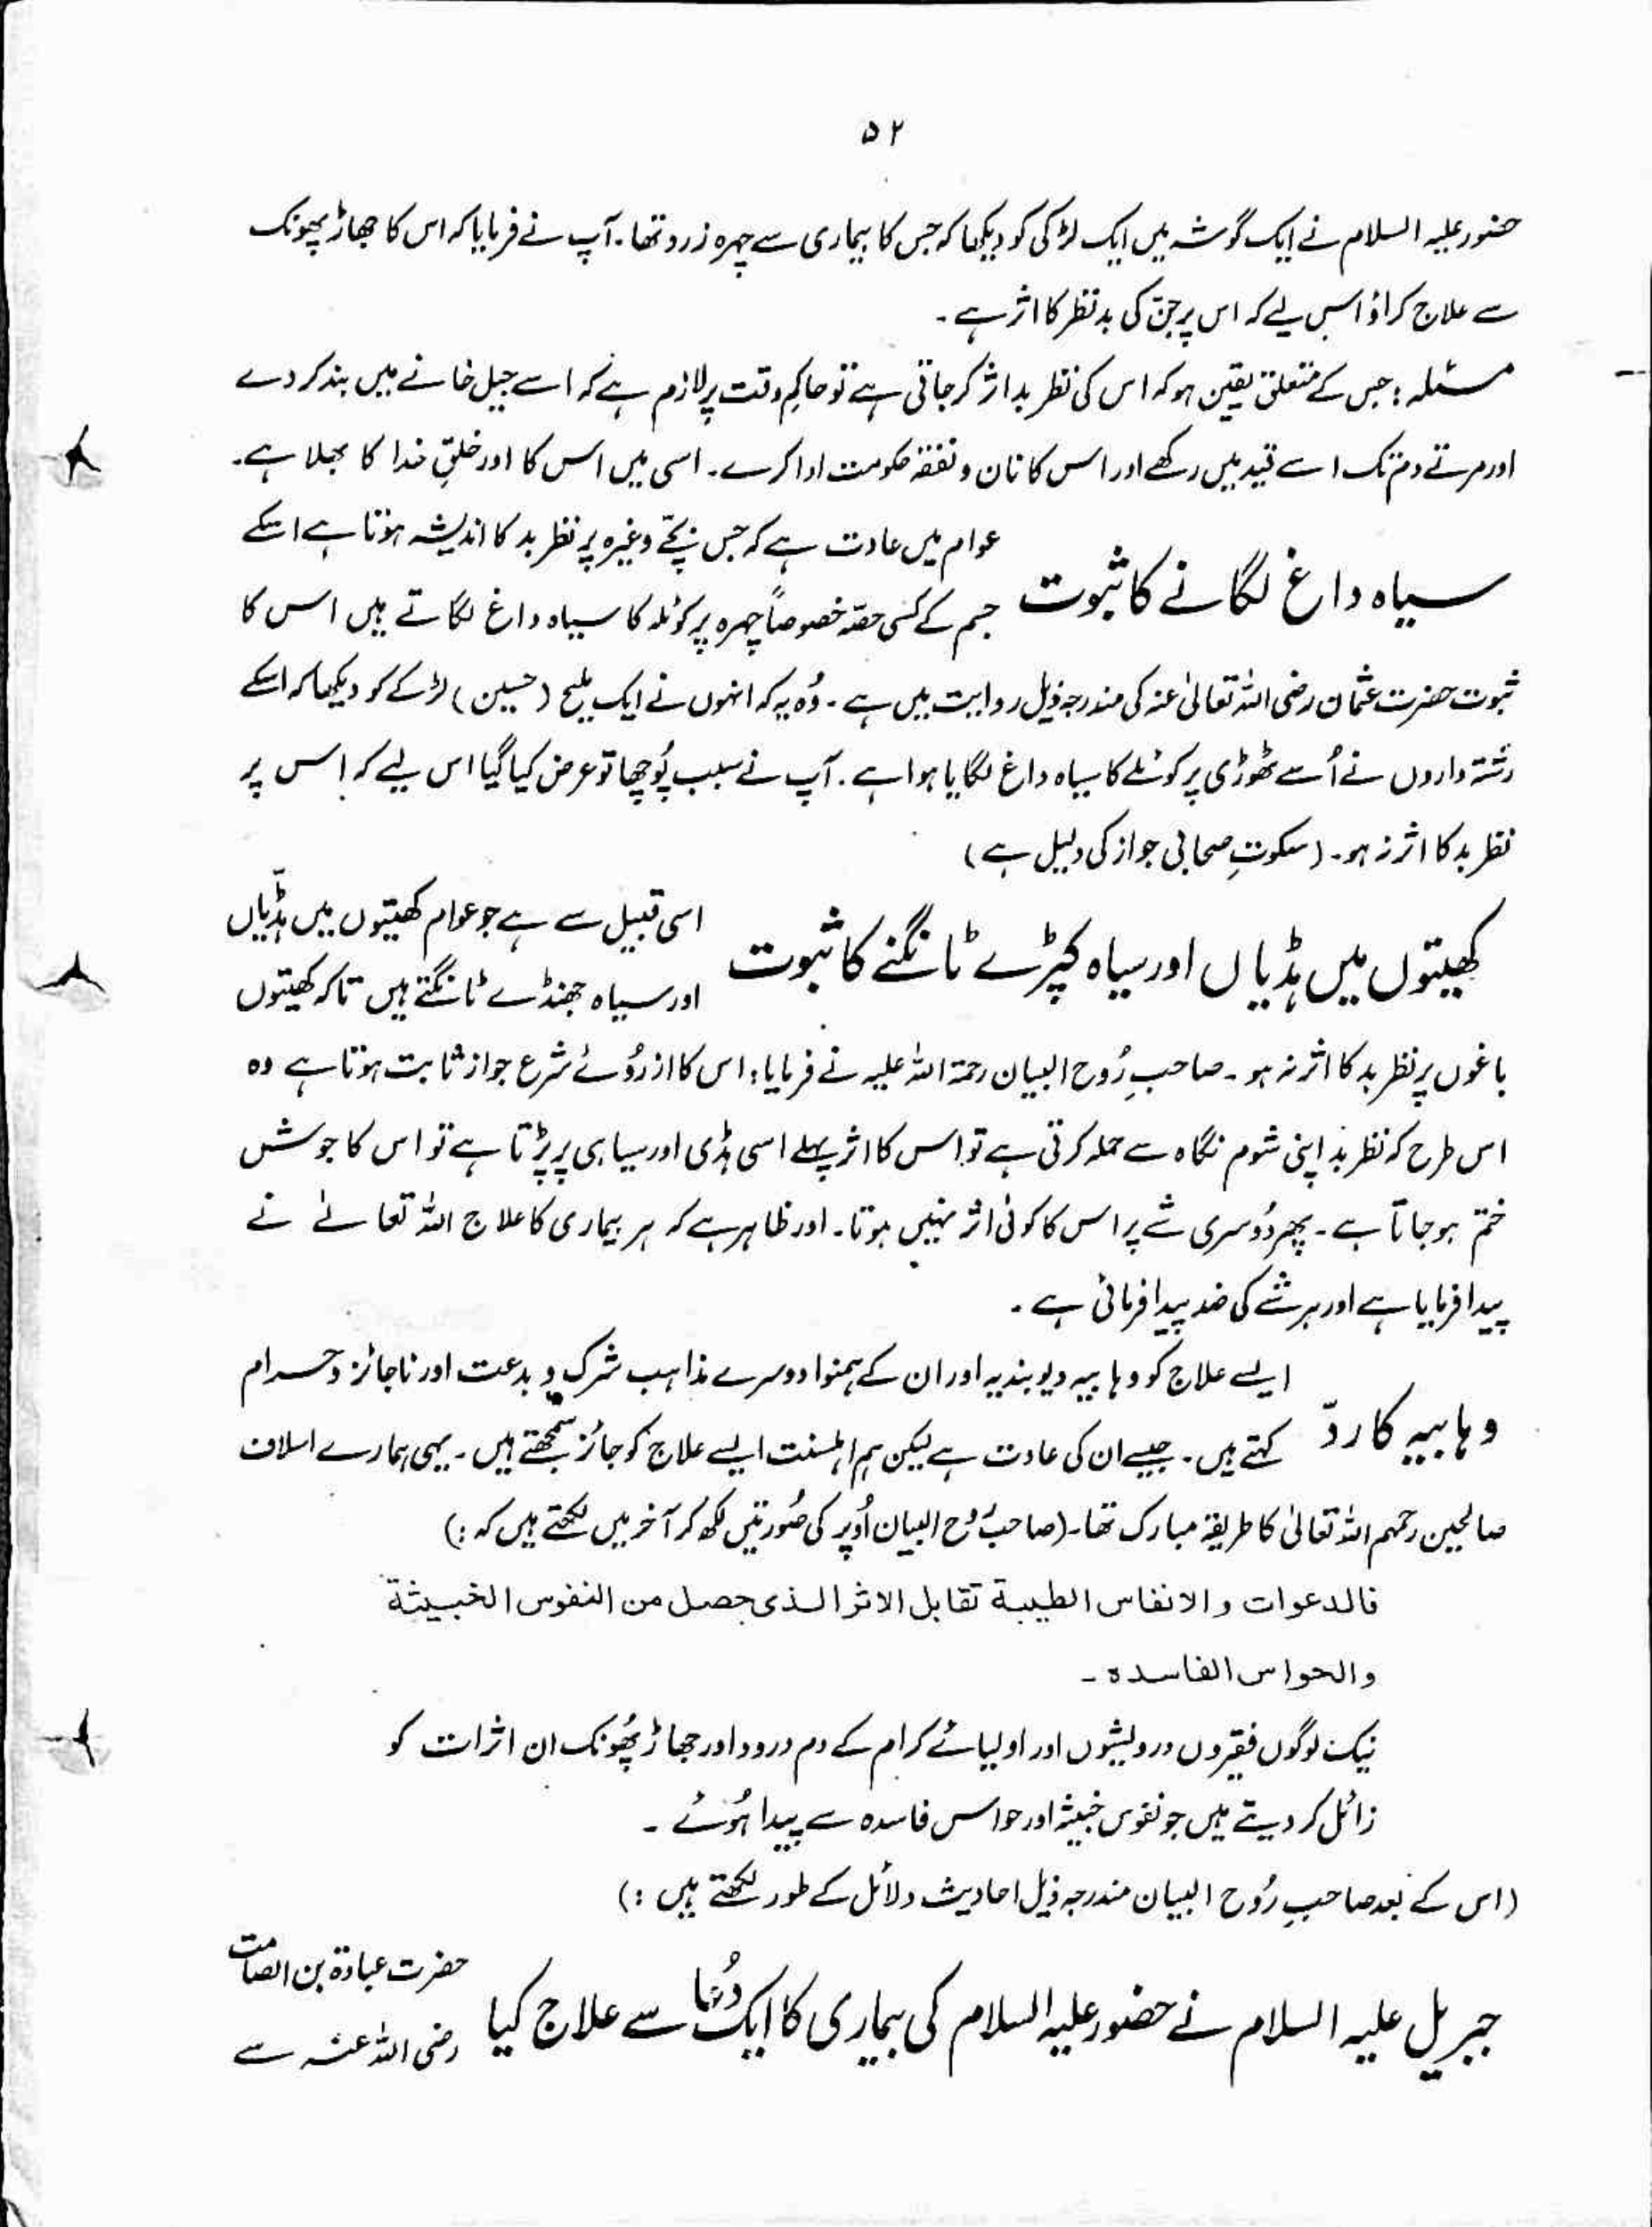 ۵۲
حضور علیہ السلام نے ایک گوشہ میں ایک لڑکی کو دیکھا کہ جس کا بیماری سے چہرہ زرد تھا۔ آپ نے فرمایا کہ اس کا جھاڑ پھونک
سے علاج کراؤ اس لیے کہ اس پر جنّ کی بد نظر کا اثر ہے۔
مسئلہ: جس کے متعلق یقین ہو کہ اس کی نظرِ بد اثر کر جاتی ہے تو حاکمِ وقت پر لازم ہے کہ اسے جیل خانے میں بند کر دے
اور مرتے دم تک اسے قید میں رکھے اور اس کا نان و نفقہ حکومت ادا کرے۔ اسی میں اس کا اور خلقِ خدا کا بھلا ہے۔
سیاہ داغ لگانے کا ثبوت
عوام میں عادت ہے کہ جس بچّے وغیرہ پر نظرِ بد کا اندیشہ ہوتا ہے اسکے
جسم کے کسی حصّہ خصوصاً چہرہ پر کوئلہ کا سیاہ داغ لگاتے ہیں اس کا
ثبوت حضرت عثمان رضی اللہ تعالیٰ عنہ کی مندرجہ ذیل روایت میں ہے۔ وُہ یہ کہ انہوں نے ایک ملیح (حسین) لڑکے کو دیکھا کہ اسکے
رشتہ داروں نے اُسے ٹھوڑی پر کوئلے کا سیاہ داغ لگایا ہوا ہے۔ آپ نے سبب پُوچھا تو عرض کیا گیا اس لیے کہ اس پر
نظرِ بد کا اثر نہ ہو۔ (سکوتِ صحابی جواز کی دلیل ہے)
کھیتوں میں ہڈیاں اور سیاہ کپڑے ٹانگنے کا ثبوت
اسی قبیل سے ہے جو عوام کھیتوں میں ہڈّیاں
اور سیاہ جھنڈے ٹانگتے ہیں تاکہ کھیتوں
باغوں پر نظرِ بد کا اثر نہ ہو۔ صاحبِ رُوح البیان رحمۃ اللہ علیہ نے فرمایا: اس کا از رُوئے شرع جواز ثابت ہوتا ہے وہ
اس طرح کہ نظرِ بد اپنی شوم نگاہ سے حملہ کرتی ہے تو اس کا اثر پہلے اسی ہڈی اور سیاہی پر پڑتا ہے تو اس کا جوش
ختم ہو جاتا ہے۔ پھر دُوسری شے پر اس کا کوئی اثر نہیں ہوتا۔ اور ظاہر ہے کہ ہر بیماری کا علاج اللہ تعالےٰ نے
پیدا فرمایا ہے اور ہر شے کی ضد پیدا فرمائی ہے۔
وہابیہ کا ردّ
ایسے علاج کو وہابیہ دیوبندیہ اور ان کے ہمنوا دوسرے مذاہب شرک و بدعت اور ناجائز و حرام
کہتے ہیں۔ جیسے ان کی عادت ہے لیکن ہم اہلسنت ایسے علاج کو جائز سمجھتے ہیں۔ یہی ہمارے اسلاف
صالحین رحمہم اللہ تعالیٰ کا طریقۂ مبارک تھا۔ (صاحبِ رُوح البیان اُوپر کی صُورتیں لکھ کر آخر میں لکھتے ہیں کہ:)
فالدعوات والانفاس الطیبة تقابل الاثر الذی حصل من النفوس الخبیثة
والحواس الفاسدہ۔
نیک لوگوں فقیروں درویشوں اور اولیائے کرام کے دم درود اور جھاڑ پھُونک ان اثرات کو
زائل کر دیتے ہیں جو نفوسِ خبیثہ اور حواس فاسدہ سے پیدا ہُوئے۔
(اس کے بعد صاحبِ رُوح البیان مندرجہ ذیل احادیث دلائل کے طور لکھتے ہیں:)
جبریل علیہ السلام نے حضور علیہ السلام کی بیماری کا ایک دُعا سے علاج کیا
حضرت عبادۃ بن الصامت
رضی اللہ عنہ سے